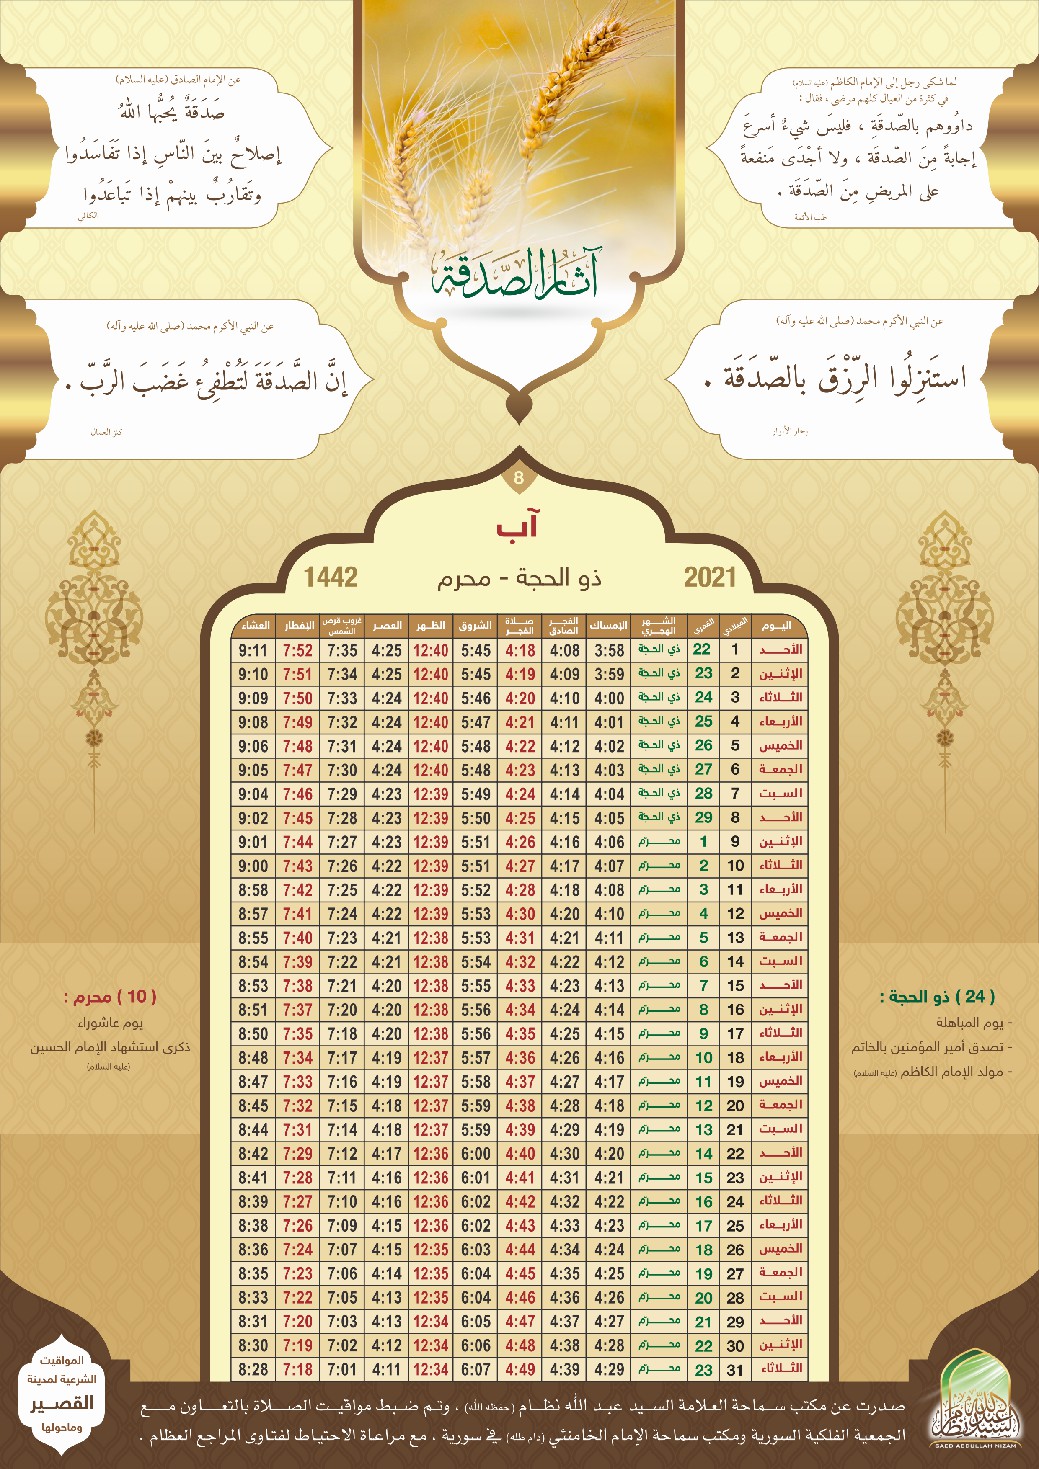 آثار الصدقة
لما شكى رجل إلى الإمام الكاظم (عليه السلام)
في كثرة من العيال كلهم مرضى ، فقال :
داوُوهم بالصّدقةِ ، فليسَ شيءٌ أسرعَ
إجابةً مِنَ الصّدقة ، ولا أجْدَى مَنفعةً
على المريضِ مِنَ الصّدَقَة .
طب الأئمة
عن الإمام الصادق (عليه السلام)
صَدَقَةٌ يُحبُّها اللهُ
إصلاحُ بينَ النّاسِ إذا تَفَاسَدُوا
وتَقَارُبٌ بينهمْ إذا تَباعَدُوا
الكافي
عن النبي الأكرم محمد (صلى الله عليه وآله)
استَنزِلُوا الرِّزْقَ بالصّدَقَة .
بحار الأنوار
عن النبي الأكرم محمد (صلى الله عليه وآله)
إنَّ الصَّدَقَةَ لَتُطْفِئُ غَضَبَ الرَّبّ .
كنز العمال
8
آب
2021 ذو الحجة - محرم 1442
اليوم الميلادي القمري الشهر الهجري الإمساك الفجر الصادق صلاة الفجر الشروق الظهر العصر غروب قرص الشمس الإفطار العشاء
الأحد 1 22 ذي الحجة 3:58 4:08 4:18 5:45 12:40 4:25 7:35 7:52 9:11
الإثنين 2 23 ذي الحجة 3:59 4:09 4:19 5:45 12:40 4:25 7:34 7:51 9:10
الثلاثاء 3 24 ذي الحجة 4:00 4:10 4:20 5:46 12:40 4:24 7:33 7:50 9:09
الأربعاء 4 25 ذي الحجة 4:01 4:11 4:21 5:47 12:40 4:24 7:32 7:49 9:08
الخميس 5 26 ذي الحجة 4:02 4:12 4:22 5:48 12:40 4:24 7:31 7:48 9:06
الجمعة 6 27 ذي الحجة 4:03 4:13 4:23 5:48 12:40 4:24 7:30 7:47 9:05
السبت 7 28 ذي الحجة 4:04 4:14 4:24 5:49 12:39 4:23 7:29 7:46 9:04
الأحد 8 29 ذي الحجة 4:05 4:15 4:25 5:50 12:39 4:23 7:28 7:45 9:02
الإثنين 9 1 محرم 4:06 4:16 4:26 5:51 12:39 4:23 7:27 7:44 9:01
الثلاثاء 10 2 محرم 4:07 4:17 4:27 5:51 12:39 4:22 7:26 7:43 9:00
الأربعاء 11 3 محرم 4:08 4:18 4:28 5:52 12:39 4:22 7:25 7:42 8:58
الخميس 12 4 محرم 4:10 4:20 4:30 5:53 12:39 4:22 7:24 7:41 8:57
الجمعة 13 5 محرم 4:11 4:21 4:31 5:53 12:38 4:21 7:23 7:40 8:55
السبت 14 6 محرم 4:12 4:22 4:32 5:54 12:38 4:21 7:22 7:39 8:54
الأحد 15 7 محرم 4:13 4:23 4:33 5:55 12:38 4:20 7:21 7:38 8:53
الإثنين 16 8 محرم 4:14 4:24 4:34 5:56 12:38 4:20 7:20 7:37 8:51
الثلاثاء 17 9 محرم 4:15 4:25 4:35 5:56 12:38 4:20 7:18 7:35 8:50
الأربعاء 18 10 محرم 4:16 4:26 4:36 5:57 12:37 4:19 7:17 7:34 8:48
الخميس 19 11 محرم 4:17 4:27 4:37 5:58 12:37 4:19 7:16 7:33 8:47
الجمعة 20 12 محرم 4:18 4:28 4:38 5:59 12:37 4:18 7:15 7:32 8:45
السبت 21 13 محرم 4:19 4:29 4:39 5:59 12:37 4:18 7:14 7:31 8:44
الأحد 22 14 محرم 4:20 4:30 4:40 6:00 12:36 4:17 7:12 7:29 8:42
الإثنين 23 15 محرم 4:21 4:31 4:41 6:01 12:36 4:16 7:11 7:28 8:41
الثلاثاء 24 16 محرم 4:22 4:32 4:42 6:02 12:36 4:16 7:10 7:27 8:39
الأربعاء 25 17 محرم 4:23 4:33 4:43 6:02 12:36 4:15 7:09 7:26 8:38
الخميس 26 18 محرم 4:24 4:34 4:44 6:03 12:35 4:15 7:07 7:24 8:36
الجمعة 27 19 محرم 4:25 4:35 4:45 6:04 12:35 4:14 7:06 7:23 8:35
السبت 28 20 محرم 4:26 4:36 4:46 6:04 12:35 4:13 7:05 7:22 8:33
الأحد 29 21 محرم 4:27 4:37 4:47 6:05 12:34 4:13 7:03 7:20 8:31
الإثنين 30 22 محرم 4:28 4:38 4:48 6:06 12:34 4:12 7:02 7:19 8:30
الثلاثاء 31 23 محرم 4:29 4:39 4:49 6:07 12:34 4:11 7:01 7:18 8:28
( 24 ) ذو الحجة :
- يوم المباهلة
- تصدق أمير المؤمنين بالخاتم
- مولد الإمام الكاظم (عليه السلام)
( 10 ) محرم :
يوم عاشوراء
ذكرى استشهاد الإمام الحسين
(عليه السلام)
صدرت عن مكتب سماحة العلامة السيد عبد الله نظام (حفظه الله) ، وتم ضبط مواقيت الصلاة بالتعاون مع
الجمعية الفلكية السورية ومكتب سماحة الإمام الخامنئي (دام ظله) في سورية ، مع مراعاة الاحتياط لفتاوى المراجع العظام .
المواقيت
الشرعية لمدينة
القصير
وماحولها
السيد عبد الله نظام
SAED ABDULLAH NIZAM